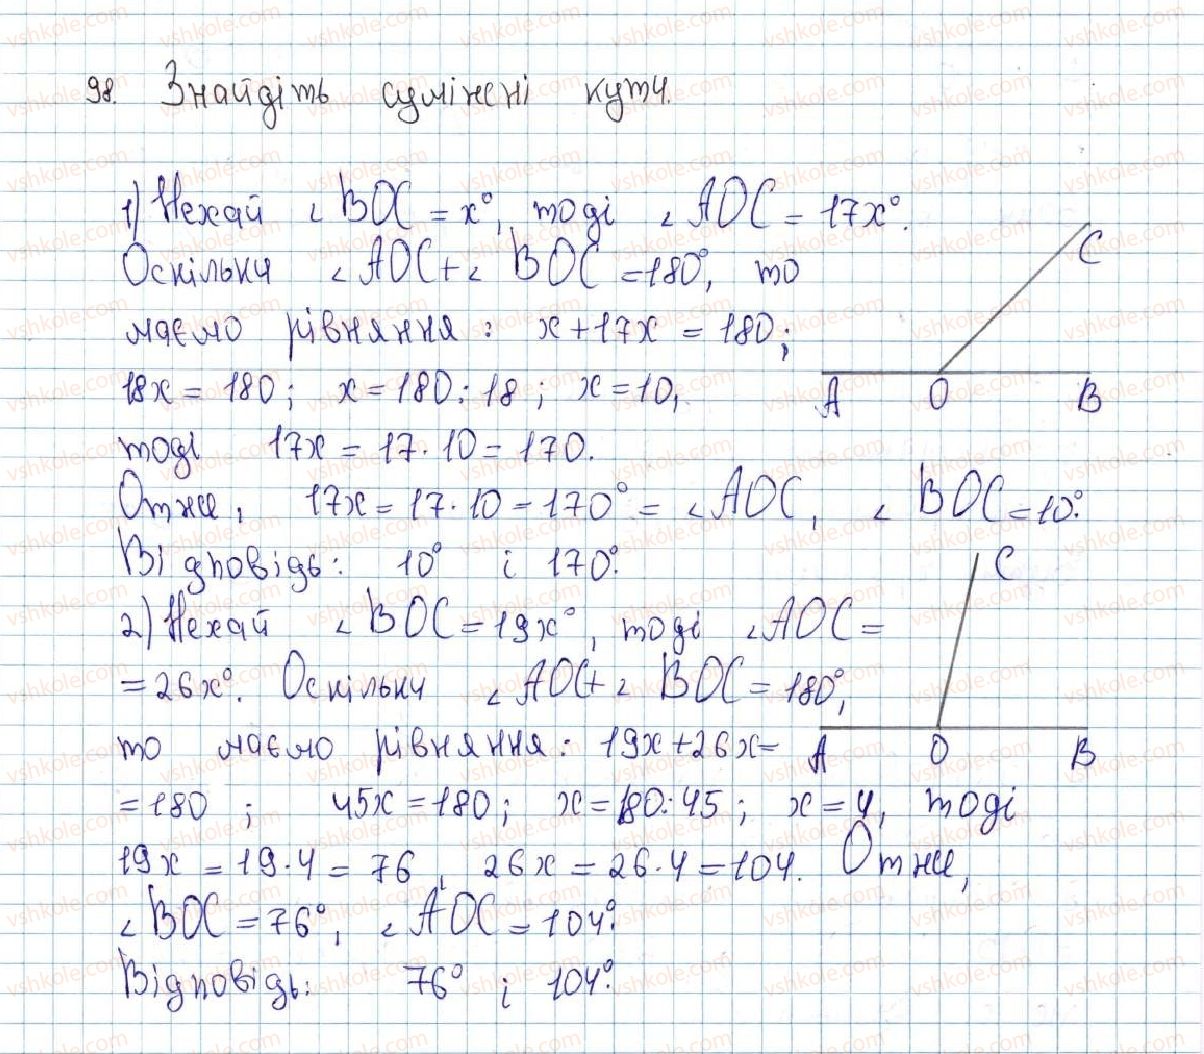 98. Знайдіть суміжені кути.
1) Нехай ∠BOC = x°, тоді ∠AOC = 17x°.
Оскільки ∠AOC + ∠BOC = 180°, то
маємо рівняння: x + 17x = 180;
18x = 180; x = 180 : 18; x = 10,
тоді 17x = 17 · 10 = 170.
Отже, 17x = 17 · 10 = 170° = ∠AOC, ∠BOC = 10°.
Відповідь: 10° і 170°.
C
A O B
2) Нехай ∠BOC = 19x°, тоді ∠AOC =
= 26x°. Оскільки ∠AOC + ∠BOC = 180°,
то маємо рівняння: 19x + 26x =
= 180; 45x = 180; x = 180 : 45; x = 4, тоді
19x = 19 · 4 = 76, 26x = 26 · 4 = 104. Отже,
∠BOC = 76°, ∠AOC = 104°.
Відповідь: 76° і 104°.
C
A O B
vshkole.com